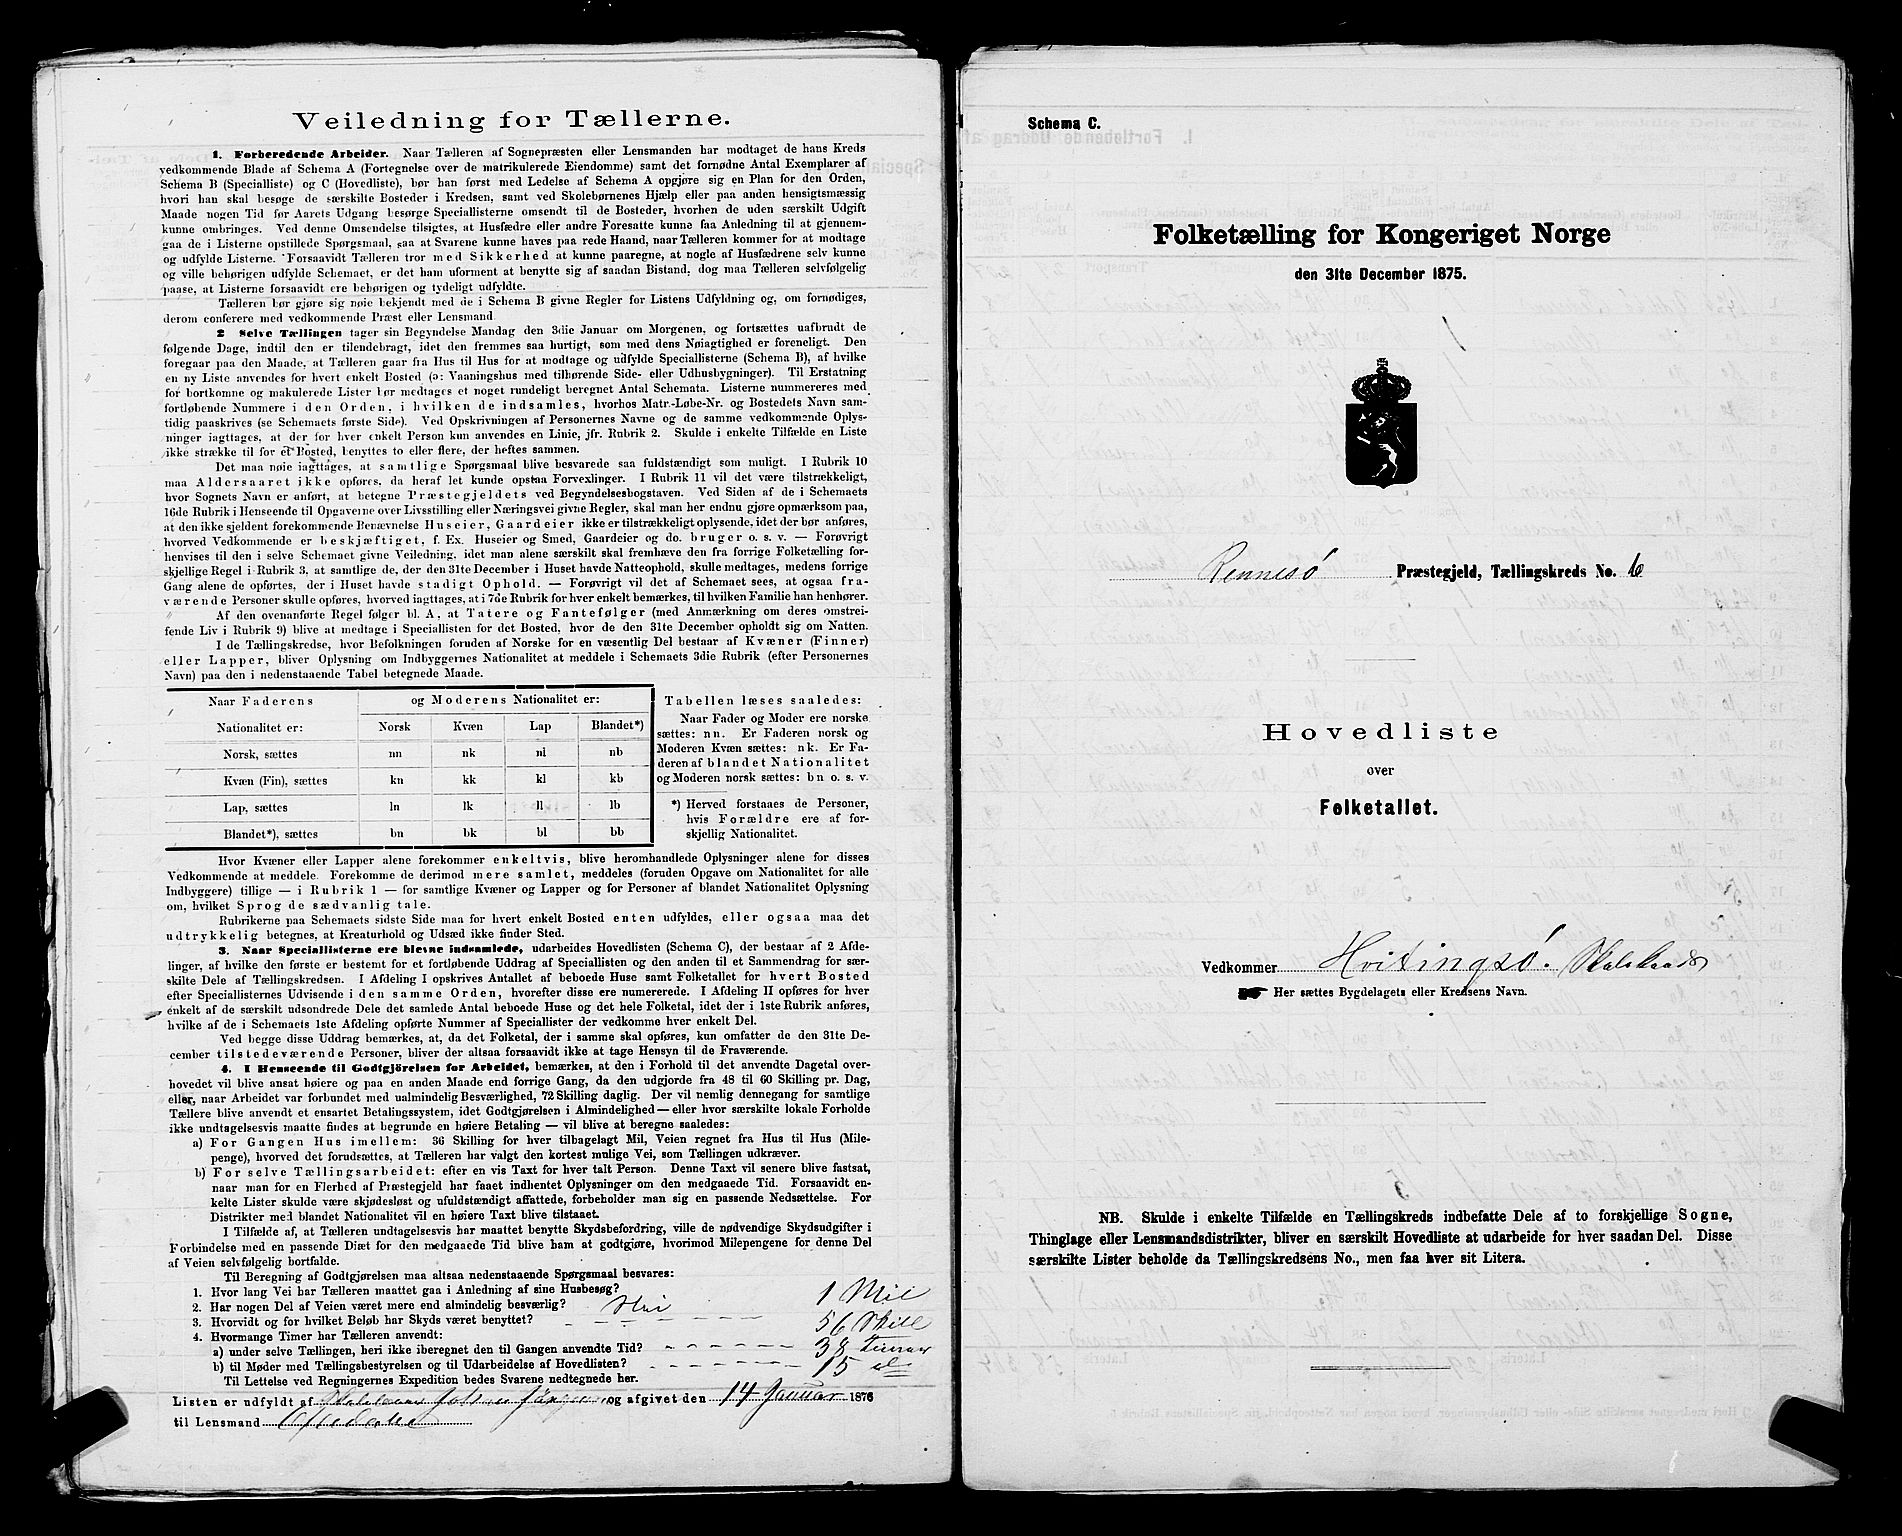 Veiledning for Tællerne.
1. Forberedende Arbeider. Naar Tælleren af Sognepræsten eller Lensmanden har modtaget de hans Kreds
vedkommende Blade af Schema A (Fortegnelse over de matrikulerede Eiendomme) samt det fornødne Antal Exemplarer af
Schema B (Specialliste) og C (Hovedliste), bør han først med Ledelse af Schema A opgjøre sig en Plan for den Orden,
hvori han skal besøge de særskilte Bosteder i Kredsen, samt ved Skolebørnenes Hjælp eller paa anden hensigtsmæssig
Maade nogen Tid før Aarets Udgang besørge Speciallisterne omsendt til de Bosteder, hvorhen de uden særskilt Udgift
kunne ombringes. Ved denne Omsendelse tilsigtes, at Husfædre eller andre Foresatte kunne faa Anledning til at gjennem-
gaa de i Listerne opstillede Spørgsmaal, saa at Svarene kunne haves paa rede Haand, naar Tælleren kommer for at modtage
og udfylde Listerne. Forsaavidt Tælleren tror med Sikkerhed at kunne paaregne, at nogle af Husfædrene selv kunne
og ville behørigen udfylde Schemaet, er det ham uforment at benytte sig af saadan Bistand, dog maa Tælleren selvfølgelig
paase, at Listerne forsaavidt ere behørigen og tydeligt udfyldte.
Tælleren bør gjøre sig nøie bekjendt med de i Schema B givne Regler for Listens Udfyldning og, om fornødiges,
derom conferere med vedkommende Præst eller Lensmand.
2 Selve Tællingen tager sin Begyndelse Mandag den 3die Januar om Morgenen, og fortsættes uafbrudt de
følgende Dage, indtil den er tilendebragt, idet den fremmes saa hurtigt, som med dens Nøiagtighed er foreneligt. Den
foregaar paa den Maade, at Tælleren gaar fra Hus til Hus for at modtage og udfylde Speciallisterne (Schema B), af hvilke
en ny Liste anvendes for hvert enkelt Bosted (ɔ: Vaaningshus med tilhørende Side- eller Udhusbygninger). Til Erstatning
for bortkomne og makulerede Lister bør medtages et noget rundeligt beregnet Antal Schemata. Listerne nummereres med
fortløbende Nummere i den Orden, i hvilken de indsamles, hvorhos Matr.-Løbe-Nr. og Bostedets Navn sam-
tidig paaskrives (se Schemaets første Side). Ved Opskrivningen af Personernes Navne og de samme vedkommende Oplys-
ninger iagttages, at der for hver enkelt Person kun anvendes en Linie, jfr. Rubrik 2. Skulde i enkelte Tilfælde en Liste
ikke strække til for et Bosted, benyttes to eller flere, der heftes sammen.
Det maa nøie iagttages, at samtlige Spørgsmaal blive besvarede saa fuldstændigt som muligt. I Rubrik 10
maa Aldersaaret ikke opføres, da heraf let kunde opstaa Forvexlinger. I Rubrik 11 vil det være tilstrækkeligt,
hvor Sognets Navn er anført, at betegne Præstegjeldets ved Begyndelsesbogstaven. Ved Siden af de i Schemaets
16de Rubrik i Henseende til Opgaverne over Livsstilling eller Næringsvei givne Regler, skal man her endnu gjøre opmærksom paa,
at den ikke sjeldent forekommende Benævnelse Huseier, Gaardeier ikke er tilstrækkeligt oplysende, idet der bør anføres,
hvorved Vedkommende er beskjæftiget, f. Ex. Huseier og Smed, Gaardeier og do. bruger o. s. v. — Forøvrigt
henvises til den i selve Schemaet givne Veiledning, idet man alene særskilt skal fremhæve den fra forrige Folketælling for-
skjellige Regel i Rubrik 3, at samtlige de, der den 31te December i Huset havde Natteophold, skulle medtages, medens forrige
Gang alene de opførtes, der i Huset havde stadigt Ophold. — Forøvrigt vil det af Schemaet sees, at ogsaa fra-
værende Personer skulle opføres, hvorved iagttages, at i 7de Rubrik for hver enkelt bemærkes, til hvilken Familie han henhører.
Af den ovenanførte Regel følger bl. A., at Tatere og Fantefølger (med Anmærkning om deres omstrei-
fende Liv i Rubrik 9) blive at medtage i Speciallisten for det Bosted, hvor de den 31te December opholdt sig om Natten.
I de Tællingskredse, hvor Befolkningen foruden af Norske for en væsentlig Del bestaar af Kvæner (Finner)
eller Lapper, bliver Oplysning om Indbyggernes Nationalitet at meddele i Schemaets 3die Rubrik (efter Personernes
Navn) paa den i nedenstaaende Tabel betegnede Maade.
Naar Faderens Nationalitet er: og Moderens Nationalitet er:
Norsk Kvæn Lap Blandet*)
Norsk, sættes nn nk nl nb
Kvæn (Fin), sættes kn kk kl kb
Lap, sættes ln lk ll lb
Blandet*), sættes bn bk bl bb
Tabellen læses saaledes:
Naar Fader og Moder ere norske
sættes: nn. Er Faderen norsk og
Moderen Kvæn sættes: nk. Er Fa-
deren af blandet Nationalitet
og Moderen norsk sættes: bn o. s. v.
*) Herved forstaaes de Personer,
hvis Forældre ere af for-
skjellig Nationalitet.
Hvor Kvæner eller Lapper alene forekommer enkeltvis, blive heromhandlede Oplysninger alene for disses
Vedkommende at meddele. Forekomme de derimod mere samlet, meddeles (foruden Opgave om Nationalitet for alle
Indbyggere) tillige — i Rubrik 1 — for samtlige Kvæner og Lapper og for Personer af blandet Nationalitet Oplysning
om, hvilket Sprog de sædvanlig tale.
Rubrikerne paa Schemaets sidste Side maa for hvert enkelt Bosted enten udfyldes, eller ogsaa maa det
udtrykkelig betegnes, at Kreaturhold og Udsæd ikke finder Sted.
3. Naar Speciallisterne ere blevne indsamlede, udarbeides Hovedlisten (Schema C), der bestaar af 2 Afde-
linger, af hvilke den første er bestemt for et fortløbende Uddrag af Speciallisten og den anden til et Sammendrag for sær-
skilte Dele af Tællingskredsen. I Afdeling I opskrives Antallet af beboede Huse samt Folketallet for hvert Bosted
efter Speciallisternes Udvisende i den samme Orden, hvorefter disse ere numererede. I Afdeling II opføres for hver
enkelt af de særskilt udsondrede Dele det samlede Antal beboede Huse og det hele Folketal, idet der i 1ste Rubrik anføres,
hvilke af de i Schemaets 1ste Afdeling opførte Nummer af Speciallister der vedkomme hver enkelt Del.
Ved begge disse Uddrag bemærkes, at, da det Folketal, der i samme skal opføres, kun omfatter de den 31te De-
cember tilstedeværende Personer, bliver der altsaa forsaavidt ikke at tage Hensyn til de Fraværende.
4. I Henseende til Godtgjörelsen for Arbeidet, bemærkes, at den i Forhold til det anvendte Dagetal over-
hovedet vil blive ansat høiere og paa en anden Maade end forrige Gang, da den udgjorde fra 48 til 60 Skilling pr. Dag,
eller, naar Arbeidet var forbundet med ualmindelig Besværlighed, 72 Skilling daglig. Der vil nemlig dennegang for samtlige
Tællere blive anvendt et ensartet Betalingssystem, idet Godtgjørelsen i Almindelighed — eller hvor særskilte lokale Forholde
ikke undtagelsesvis maatte findes at begrunde en høiere Betaling — vil blive at beregne saaledes:
a) For Gangen Hus imellem: 36 Skilling for hver tilbagelagt Mil, Veien regnet fra Hus til Hus (Mile-
penge), hvorved det forudsættes, at Tælleren har valgt den kortest mulige Vei, som Tællingen udkræver.
b) For selve Tællingsarbeidet: efter en vis Taxt for hver talt Person. Denne Taxt vil senere blive fastsat,
naar man for en Flerhed af Præstegjeld har faaet indhentet Oplysninger om den medgaaede Tid. Forsaavidt en-
kelte Lister skulde være skjødesløst og ufuldstændigt affattede, forbeholder man sig en passende Nedsættelse. For
Distrikter med blandet Nationalitet vil en høiere Taxt blive tilstaaet.
I Tilfælde af, at Tælleren undtagelsesvis har maattet benytte Skydsbefordring, ville de nødvendige Skydsudgifter i
Forbindelse med en passende Diæt for den medgaaede Tid blive ham at godtgjøre, hvorimod Milepengene for denne Del
af Veien selvfølgelig bortfalde.
Til Beregning af Godtgjørelsen maa altsaa nedenstaaende Spørgsmaal besvares:
1. Hvor lang Vei har Tælleren maattet gaa i Anledning af sine Husbesøg? 1 Mil
2. Har nogen Del af Veien været mere end almindelig besværlig?
3. Hvorvidt og for hvilket Beløb har Skyds været benyttet? 56 Skill
4. Hvormange Timer har Tælleren anvendt:
a) under selve Tællingen, heri ikke iberegnet den til Gangen anvendte Tid? 38 Timer
b) til Møder med Tællingsbestyrelsen og til Udarbeidelse af Hovedlisten? 15 do
Til Lettelse ved Regningernes Expedition bedes Svarene nedtegnede her.
Listen er udfyldt af og afgivet den 14 Januar 1876
til Lensmand
Schema C.
Folketælling for Kongeriget Norge
den 31te December 1875.
Rennesö Præstegjeld, Tællingskreds No. 6
Hovedliste
over
Folketallet.
Vedkommer Hvitingsö.
Her sættes Bygdelagets eller Kredsens Navn.
NB. Skulde i enkelte Tilfælde en Tællingskreds indbefatte Dele af to forskjellige Sogne,
Thinglage eller Lensmandsdistrikter, bliver en særskilt Hovedliste at udarbeide for hver saadan Del. Disse
særskilte Lister beholde da Tællingskredsens No., men faa hver sit Litera.